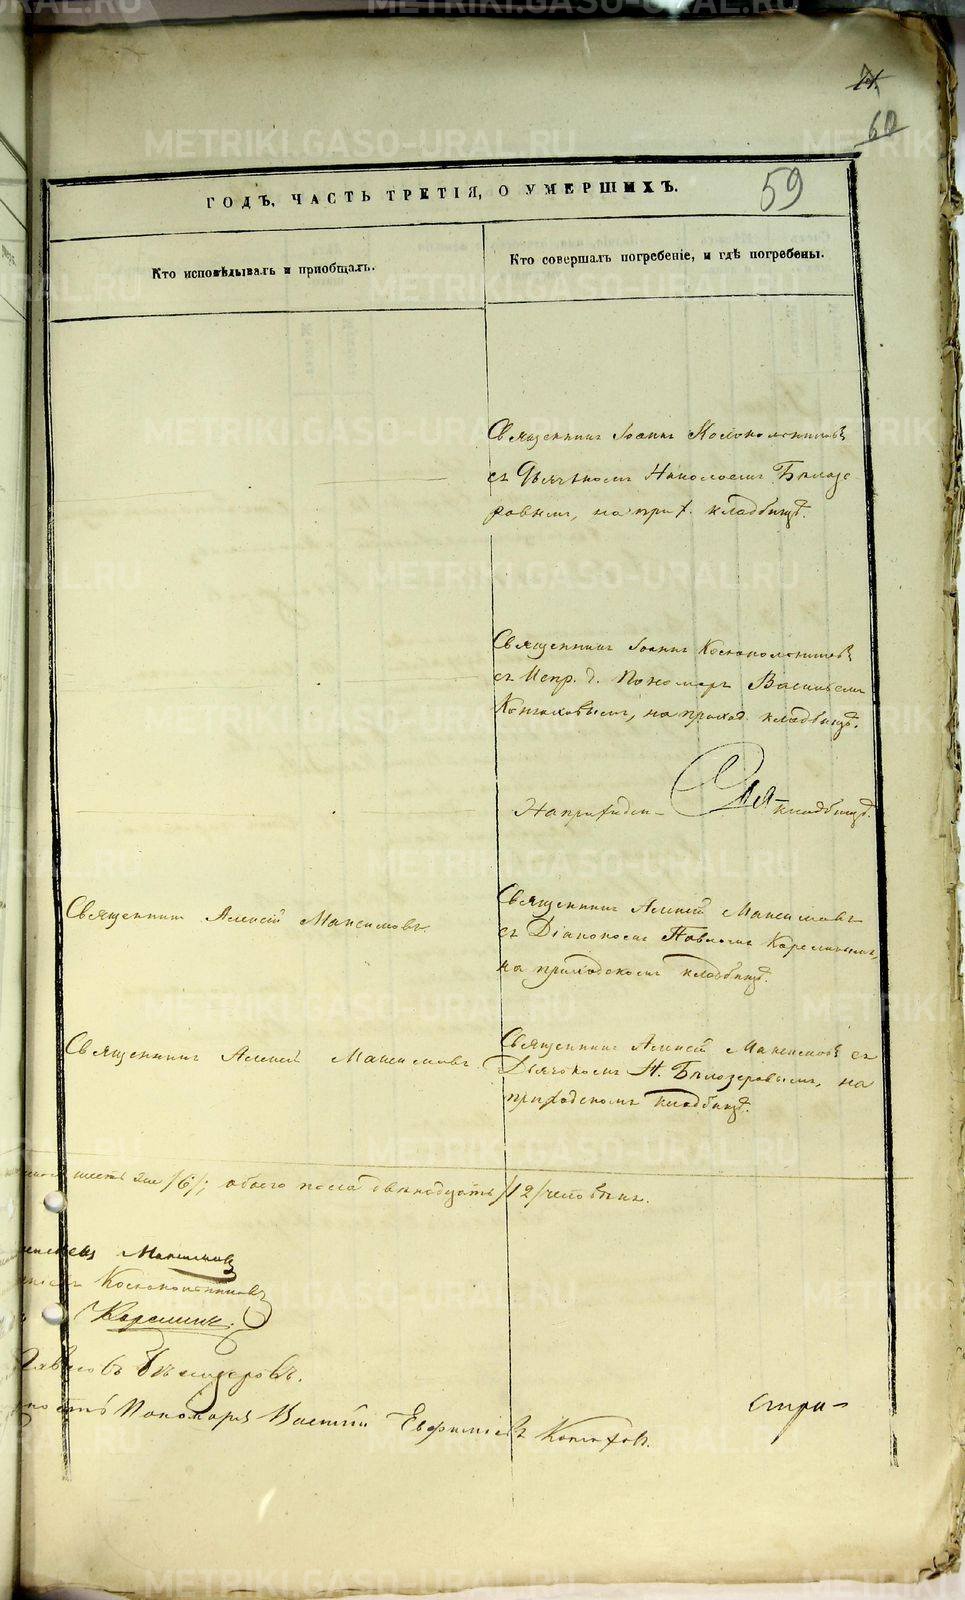 60
59
ГОДЪ, ЧАСТЬ ТРЕТІЯ, О УМЕРШИХЪ.
Кто исповѣдывалъ и пріобщалъ.
Кто совершалъ погребеніе, и гдѣ погребены.
Священникъ Іоаннъ
съ Дьячкомъ Николаемъ Бѣлозе
ровымъ, на прих. кладбищѣ.
Священникъ Іоаннъ
съ Испр. д. Пономаря Василіемъ
на приход. кладбищѣ.
На приходск кладбищѣ.
Священникъ Алексій Максимовъ.
Священникъ Алексій Максимовъ
съ Діакономъ Павломъ Карелинымъ,
на приходскомъ кладбищѣ.
Священникъ Алексій Максимовъ.
Священникъ Алексій Максимовъ съ
Дьячкомъ Н. Бѣлозеровымъ, на
приходскомъ кладбищѣ.
шесть /6/; обоего пола двѣнадцать /12/ человѣкъ.
Максимовъ
Карелинъ.
Бѣлозеровъ.
Пономаря Василій Евфиміевъ
METRIKI.GASO-URAL.RU